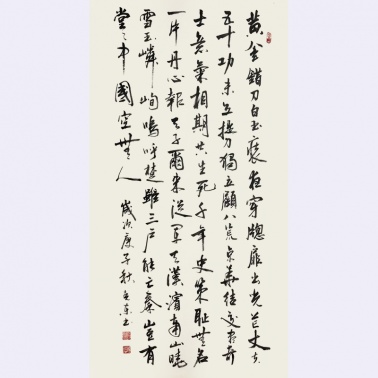 黄金錯刀白玉裝夜穿牕扉出光芒丈夫
五十功未立提刀獨立顧八荒京華結交盡奇
士意氣相期共生死千年史策恥無名
一片丹心報天子爾來從軍天漢濱南山曉
雪玉嶙峋嗚呼楚雖三户能亡秦豈有
堂堂中國空無人
歲次庚子秋